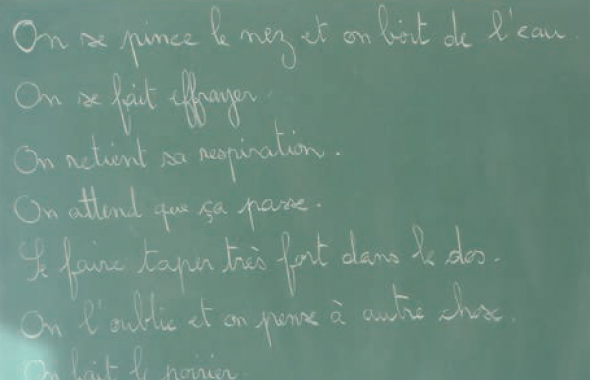 On se pince le nez et on boit de l'eau.
On se fait effrayer.
On retient sa respiration.
On attend que ça passe.
Se faire taper très fort dans le dos.
On l'oublie et on pense à autre chose.
On fait le poirier.